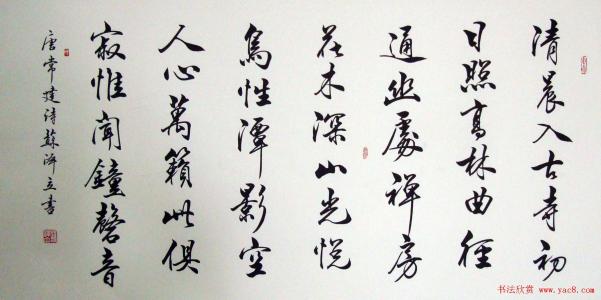 清晨入古寺初
日照高林曲徑
通幽處禪房
花木深山光悦
鳥性潭影空
人心萬籟此俱
寂惟聞鐘磬音
唐常建诗蘇泽立书
书法欣赏 www.yac8.com